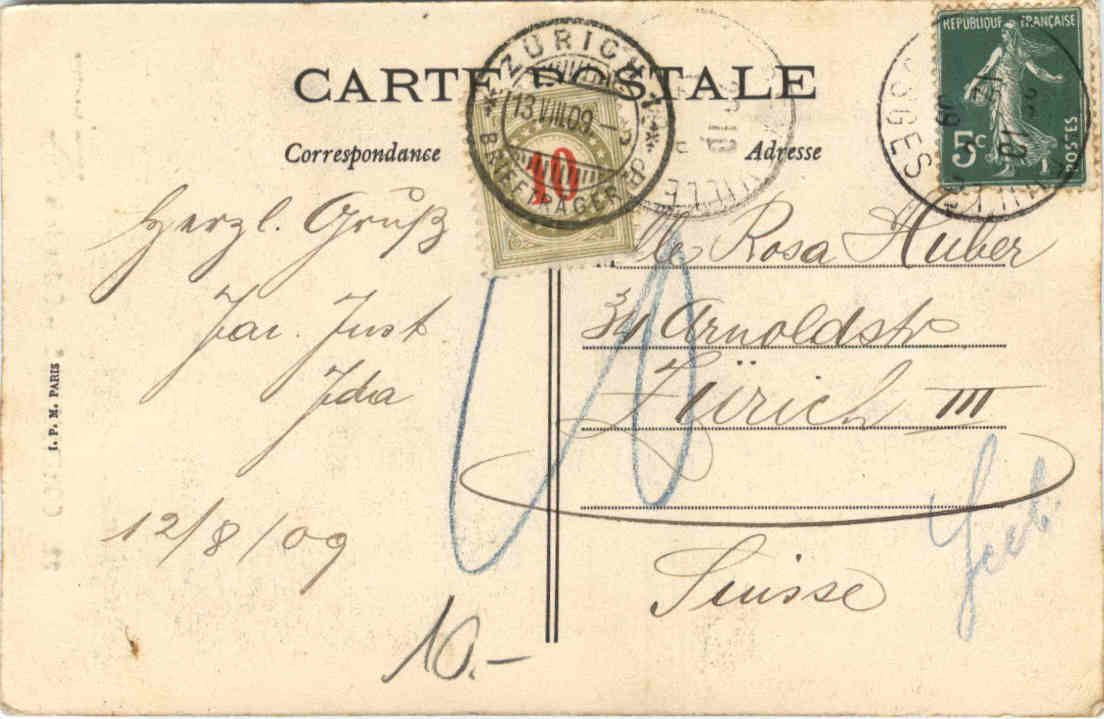 CARTE POSTALE
Correspondance
Adresse
ZÜRICH 1
13.VIII.09.
BRIEFTRÄGER
10
VILLE
RÉPUBLIQUE FRANÇAISE
5c
POSTES
Herzl. Gruß
Jac. Just
Ida
12/8/09
10.-
Rosa Huber
34 Arnoldstr
Zürich III
Suisse
I. P. M. PARIS